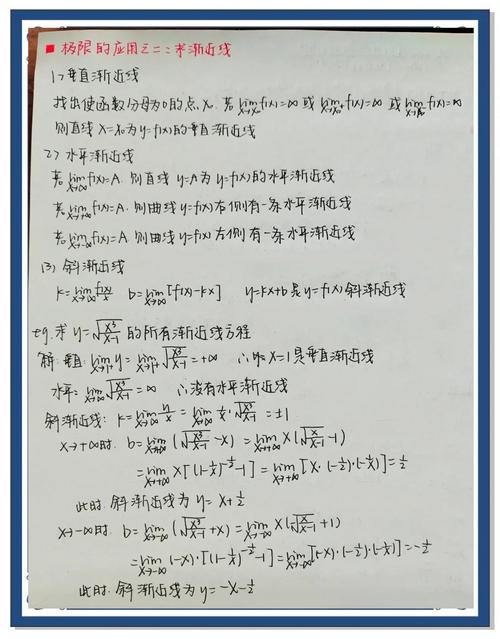 ■ 极限的应用之二:求渐近线
(1) 垂直渐近线
找出使函数分母为0的点x₀. 若 lim_{x→x₀} f(x)=∞ 或 lim_{x→x₀⁺} f(x)=∞ 或 lim_{x→x₀⁻} f(x)=∞
则直线 x=x₀ 为 y=f(x) 的垂直渐近线
(2) 水平渐近线
若 lim_{x→∞} f(x)=A. 则直线 y=A 为 y=f(x) 的水平渐近线
若 lim_{x→+∞} f(x)=A. 则曲线 y=f(x) 右侧有一条水平渐近线
若 lim_{x→-∞} f(x)=A 则曲线 y=f(x) 右侧有一条水平渐近线
(3) 斜渐近线
k=lim_{x→∞} f(x)/x b=lim_{x→∞} [f(x)-kx] y=kx+b 是 y=f(x) 斜渐近线
eg. 求 y=√(x³/(x-1)) 的所有渐近线方程
解: 垂直: lim_{x→1⁺} y=lim_{x→1⁺} √(x³/(x-1)) =+∞ ∴ x=1 是垂直渐近线
水平: lim_{x→∞} √(x³/(x-1)) =∞ ∴没有水平渐近线
斜渐近线: k=lim_{x→∞} y/x = lim_{x→∞} 1/x·√(x³/(x-1)) =±1
x→+∞时. b=lim_{x→+∞} (√(x³/(x-1)) -x) =lim_{x→+∞} x(√(x/(x-1)) -1)
=lim_{x→+∞} x[(1-1/x)^{-1/2}-1] =lim_{x→+∞} [x·(-1/2)·(-1/x)]=1/2
此时. 斜渐近线为 y=x+1/2
x→-∞时. b=lim_{x→-∞} (√(x³/(x-1)) +x) =lim_{x→-∞} x(√(x/(x-1)) +1)
=lim_{x→-∞} (-x)·[(1-1/x)^{-1/2}-1] =lim_{x→-∞} [(-x)·(-1/2)·(-1/x)]=-1/2
此时. 斜渐近线为 y=-x-1/2